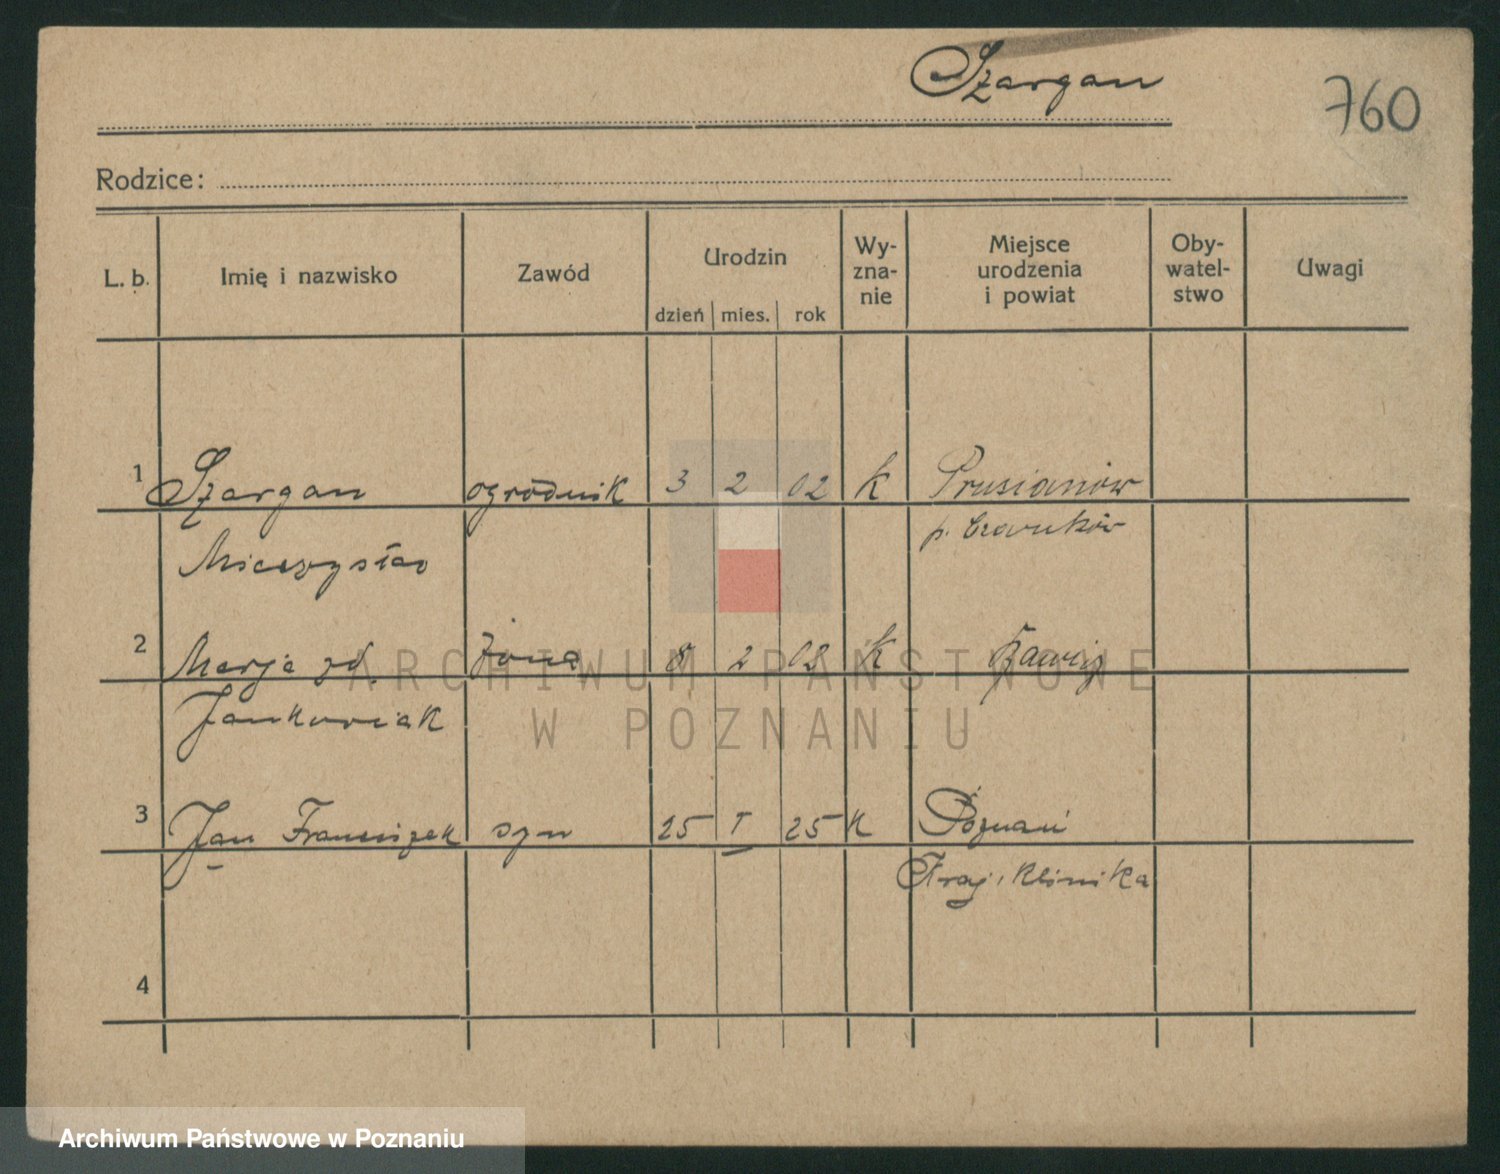 Szargan
760
Rodzice:
L. b. Imię i nazwisko Zawód Urodzin dzień mies. rok Wy-zna-nie Miejsce urodzenia i powiat Oby-watel-stwo Uwagi
1 Szargan ogrodnik 3 2 02 k Prusianów
Mieczysław p. Czarnków
2 Marja zd. żona 8 2 02 k
Jankowiak
3 Jan Franciszek syn 25 I 25 k Poznań
Kraj. Klinika
4
ARCHIWUM PAŃSTWOWE
W POZNANIU
Archiwum Państwowe w Poznaniu